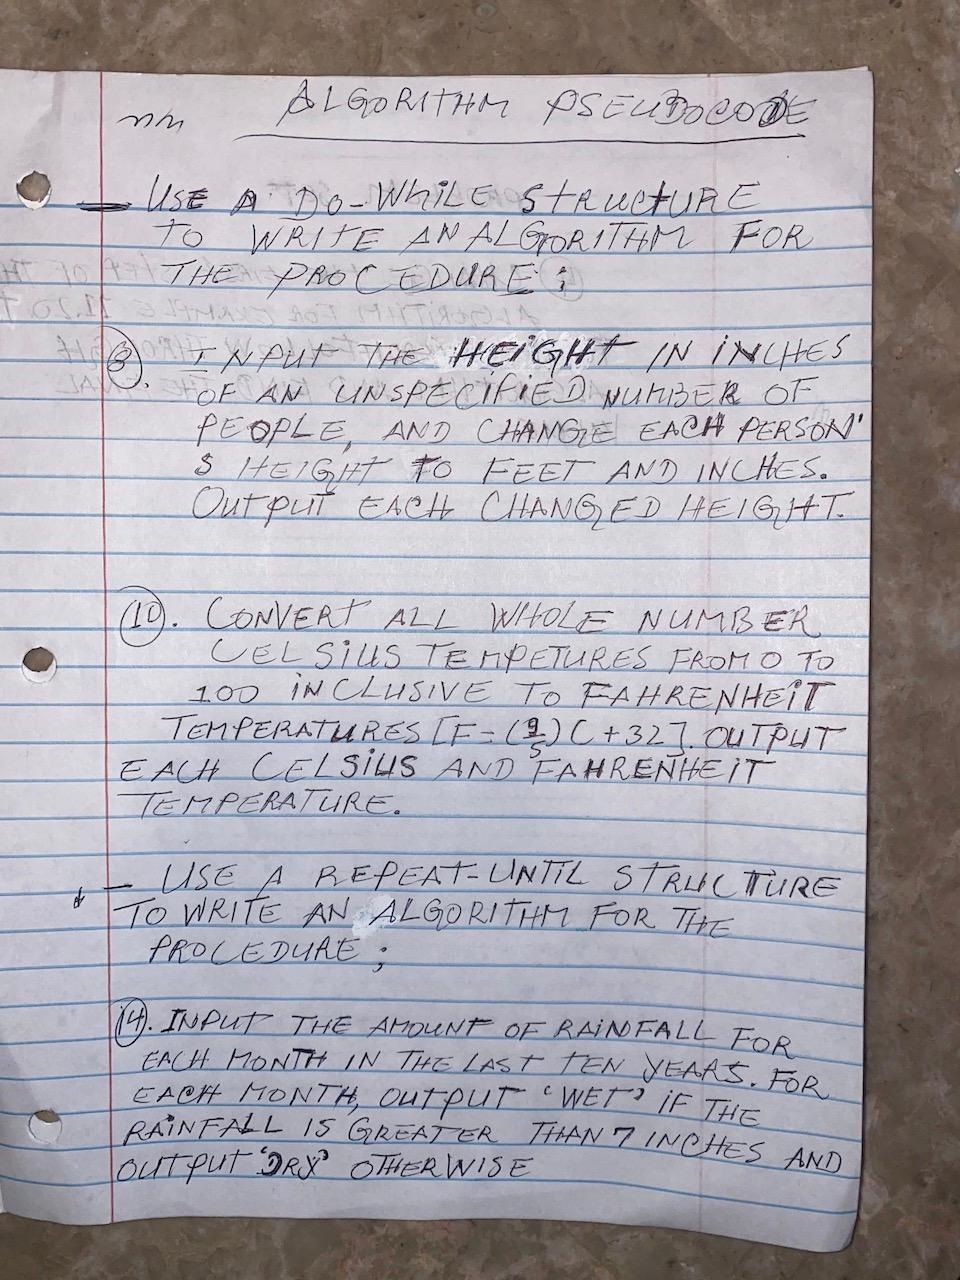 ALGORITHM PSEUDOCODE
- USE A DO-WHILE STRUCTURE
TO WRITE AN ALGORITHM FOR
THE PROCEDURE;
8. INPUT THE HEIGHT IN INCHES
OF AN UNSPECIFIED NUMBER OF
PEOPLE, AND CHANGE EACH PERSON'
S HEIGHT TO FEET AND INCHES.
OUTPUT EACH CHANGED HEIGHT.
10. CONVERT ALL WHOLE NUMBER
CELSIUS TEMPETURES FROM 0 TO
100 INCLUSIVE TO FAHRENHEIT
TEMPERATURES [F=(9/5)C+32]. OUTPUT
EACH CELSIUS AND FAHRENHEIT
TEMPERATURE.
- USE A REPEAT-UNTIL STRUCTURE
TO WRITE AN ALGORITHM FOR THE
PROCEDURE;
14. INPUT THE AMOUNT OF RAINFALL FOR
EACH MONTH IN THE LAST TEN YEARS. FOR
EACH MONTH, OUTPUT 'WET' IF THE
RAINFALL IS GREATER THAN 7 INCHES AND
OUTPUT 'DRY' OTHERWISE